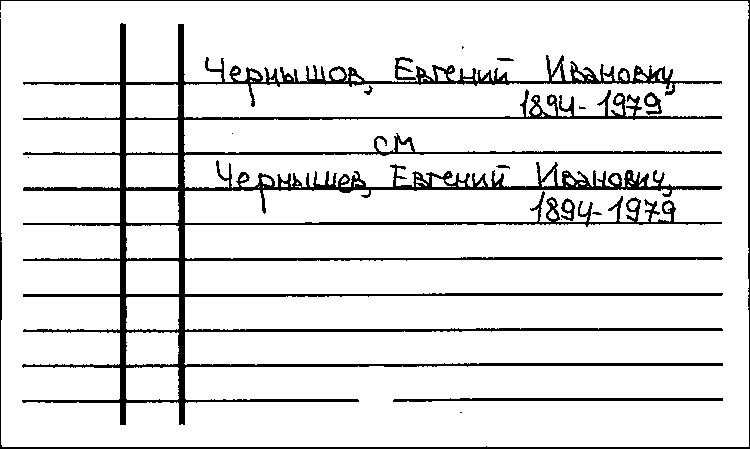 Чернышов, Евгений Иванович,
1894-1979
см
Чернышев, Евгений Иванович,
1894-1979